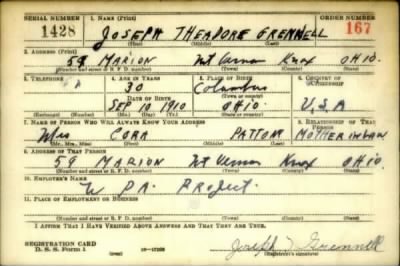 SERIAL NUMBER 1. NAME (Print) ORDER NUMBER
1428 JOSEPH THEADORE GRENNELL 167
(First) (Middle) (Last)
2. ADDRESS (Print)
59 MARION Mt Vernon Knox OHIO.
(Number and street or R. F. D. number) (Town) (County) (State)
3. TELEPHONE 4. AGE IN YEARS 5. PLACE OF BIRTH 6. COUNTRY OF CITIZENSHIP
30 Columbus
DATE OF BIRTH (Town or county)
SEP 10 1910 OHIO. U.S.A
(Exchange) (No.) (Mo.) (Day) (Yr.) (State or country)
7. NAME OF PERSON WHO WILL ALWAYS KNOW YOUR ADDRESS 8. RELATIONSHIP OF THAT PERSON
Mrs CORA PATTON MOTHER IN LAW
(Mr., Mrs., Miss) (First) (Middle) (Last)
9. ADDRESS OF THAT PERSON
59 MARION Mt Vernon Knox OHIO.
(Number and street or R. F. D. number) (Town) (County) (State)
10. EMPLOYER'S NAME
W PA. Project.
11. PLACE OF EMPLOYMENT OR BUSINESS
(Number and street or R. F. D. number) (Town) (County) (State)
I AFFIRM THAT I HAVE VERIFIED ABOVE ANSWERS AND THAT THEY ARE TRUE.
REGISTRATION CARD
D. S. S. Form 1 Joseph T Grennell
(Registrant's signature)